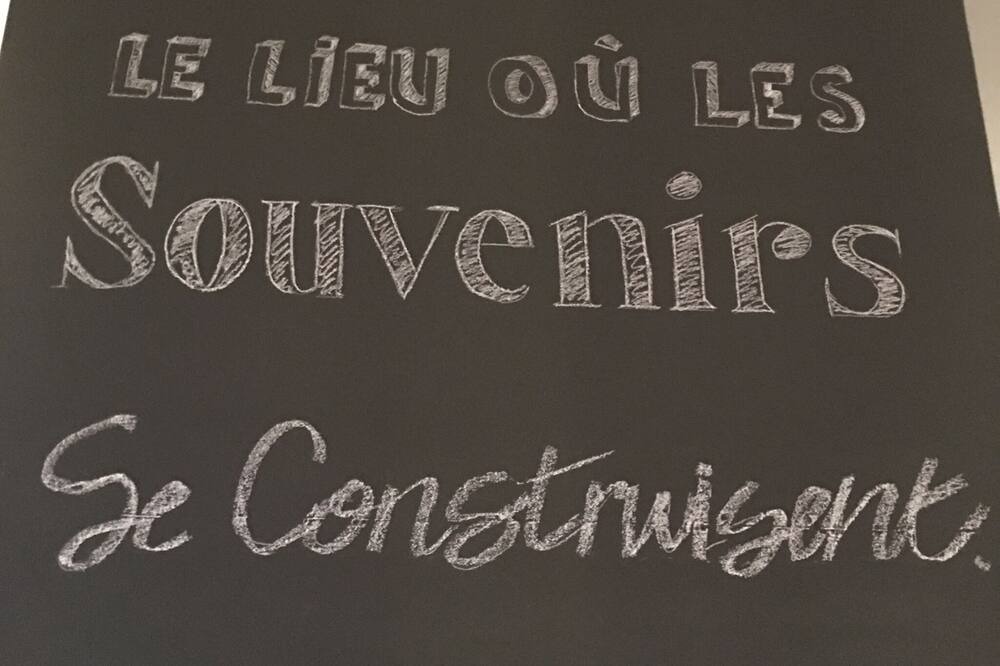 LE LiEU OÙ LES
Souvenirs
Se Construisent.